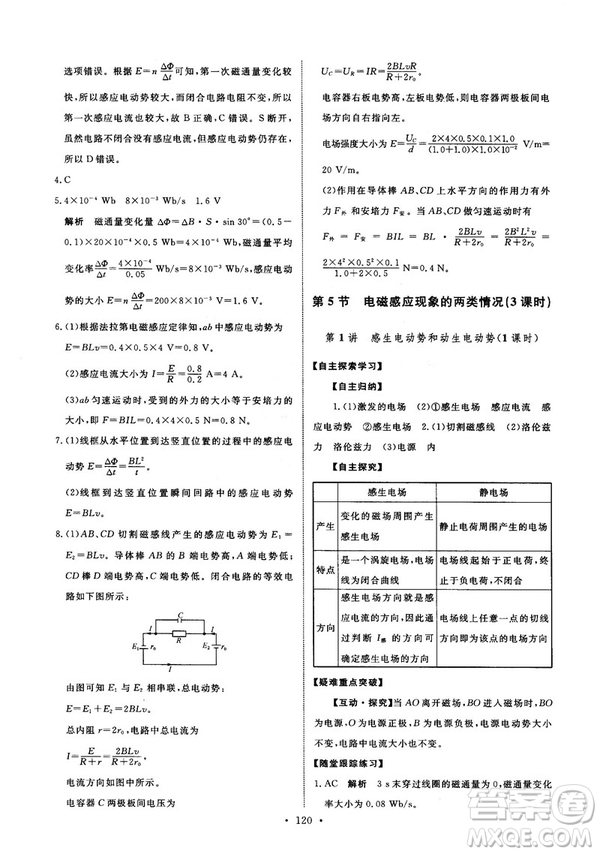 选项错误。根据 E=n ΔΦ/Δt 可知,第一次磁通量变化较
快,所以感应电动势较大,而闭合电路电阻不变,所以
第一次感应电流较大,B 正确,C 错误。S 断开,
虽然电路不闭合没有感应电流,但感应电动势仍存在,
所以 D 错误。
4.C
5.4×10⁻⁴ Wb 8×10⁻³ Wb/s 1.6 V
解析 磁通量变化量 ΔΦ=ΔB·S·sin 30°=(0.5-
0.1)×20×10⁻⁴×0.5 Wb=4×10⁻⁴ Wb,磁通量平均
变化率 ΔΦ/Δt = 4×10⁻⁴/0.05 Wb/s=8×10⁻³ Wb/s,感应电动
势大小 E=n ΔΦ/Δt =200×8×10⁻³ V=1.6 V。
6.(1)根据法拉第电磁感应定律知,ab 中感应电动
势为 E=BLv=0.4×0.5×4 V=0.8 V。
(2)感应电流大小 I= E/R = 0.8/0.2 A=4 A。
(3)ab 匀速运动时,外力的大小等于安培力的大
小,即 F=BIL=0.4×4×0.5 N=0.8 N。
7.(1)线框从水平位置到达竖直位置的过程中的感应电
动势 E= ΔΦ/Δt = BL²/t。
(2)线框到达竖直位置瞬间回路中的感应电动势
E=BLv。
8.(1)AB、CD 切割磁感线产生感应电动势为 E₁=
E₂=BLv。导体棒 AB 的 B 端电势高,CD 的 C
端电势高。闭合电路的等效电
路如下图所示。
C
I R I
E₁ r₀ E₂ r₀
I
由图可知 E₁ 与 E₂ 相串联,总电动势
E=2BLv。
总内阻 r=2r₀,电路中总电流
I= E/(R+r) = 2BLv/(R+2r₀)
电流方向如图所示。
电容器 C 两极板间电压为
U_C=U_R=IR= 2BLvR/(R+2r₀)
电容器右板电势高,左板电势低,电容器两极板间电
场方向自右指向左。
电场强度大小 E= U_C/d = 2×4×0.5×0.1×1.0/((1.0+1.0)×10×10⁻³) V/m=
20 V/m。
(2)作用在导体棒 AB、CD 上水平方向的作用外
力 F外和安培力 F安使 AB、CD 做匀速运动时有
F外=F安=BIL=BL· 2BLv/(R+2r₀) = 2B²L²v/(R+2r₀) =
2×4²×0.5²×0.1/(1.0+1.0) N=0.4 N。
第 5 节 电磁感应现象的两类情况(3 课时)
第 1 讲 感生电动势和动生电动势(1 课时)
【自主探索学习】
【自主归纳】
1.(1)激发的电场 (2)①感生电场 感应电流 感
生电场 ②感生电场 2.(1)切割磁感线 (2)①洛伦兹
力 洛伦兹力 (3)②电源 内
【自主探究】
感生电场 静电场
产生 变化的磁场周围产生感生电场 静止电荷周围产生的电场
特点 是一个涡旋电场,电场线为闭合曲线 电场线起始于正电荷,终止于负电荷,不闭合
方向 感生电场的方向就是感应电流的方向,可先判断 I感 的方向,再确定感生电场的方向 电场线上每一点的切线方向即为该点的电场方向
【疑难重点突破】
【互动·探究】 AO 离开磁场,BO 进入磁场,BO
为电源正极,AO 为电源负极,电动势大小和方向
不变。
【随堂跟踪练习】
1.AC 解析 3 s 末穿过线圈的磁通量变化
率大小为 0.08 Wb/s。
120
作业精灵